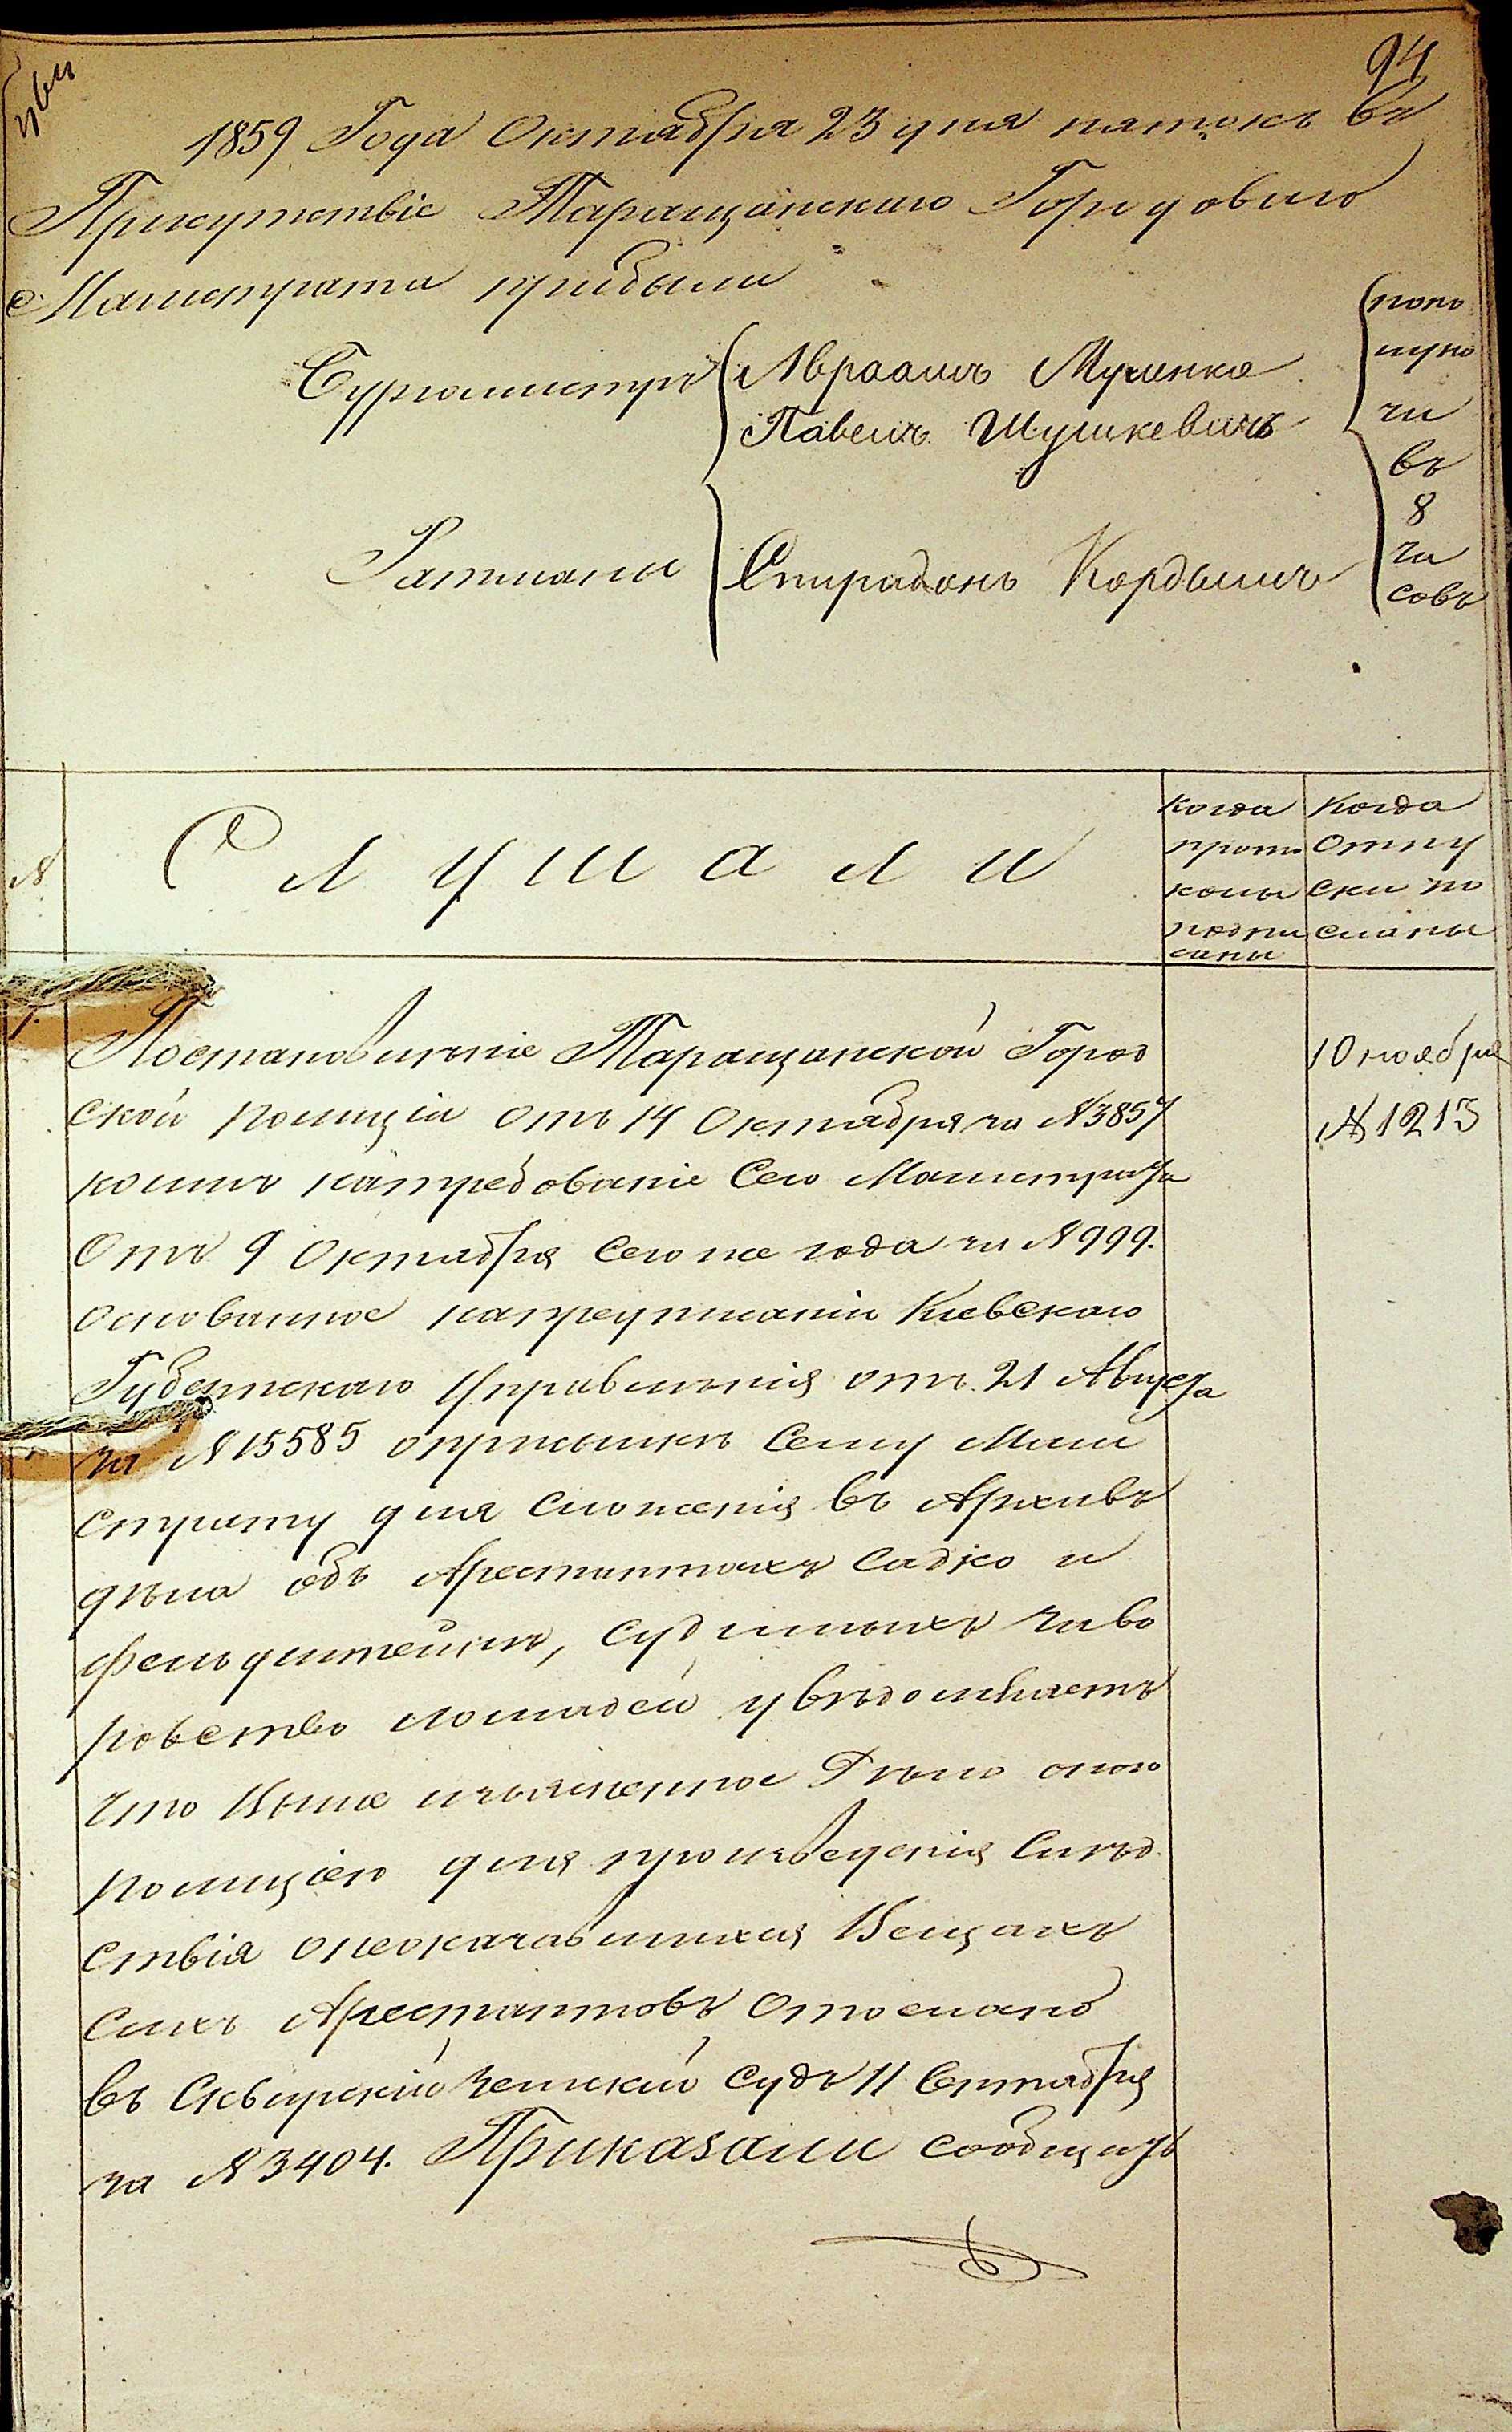 94
1859 Года Октября 23 дня пятокъ въ
Присутствіе Таращанскаго Городоваго
Магистрата прибыли
Бургомистръ
Авраамъ Мученко
Павелъ Шушкевичъ
Ратманы
Спиридонъ Кордышъ
попо
луно
чи
въ
8
ча
совъ
№
Слушали
когда
прото
колы
подпи
саны
Когда
отпу
ски по
сланы
1.
Постановленіе Таращанской Город
ской полиціи отъ 14 Октября за №3857
коимъ натребованіе Сего Магистрата
Отъ 9 Октября сего же года за №999.
основанное напредписаніи Киевскаго
Губернскаго Управленія отъ 21 Августа
за №15585 оприсылкѣ Сему Маги
страту для сложенія въ Архивъ
дѣла объ Арестантахъ Садко и
Фельдштейнѣ, судимыхъ заво
ровство лошадей увѣдомляетъ
что Выше изъясненное Дѣло оною
полиціею для произведенія Слѣд
ствія онеоказавшихся Вещахъ
сихъ Арестантовъ отослано
въ Сквирскій Земскій Судъ 11 Сентября
за №3404. Приказали сообщить
10 ноября
№1213